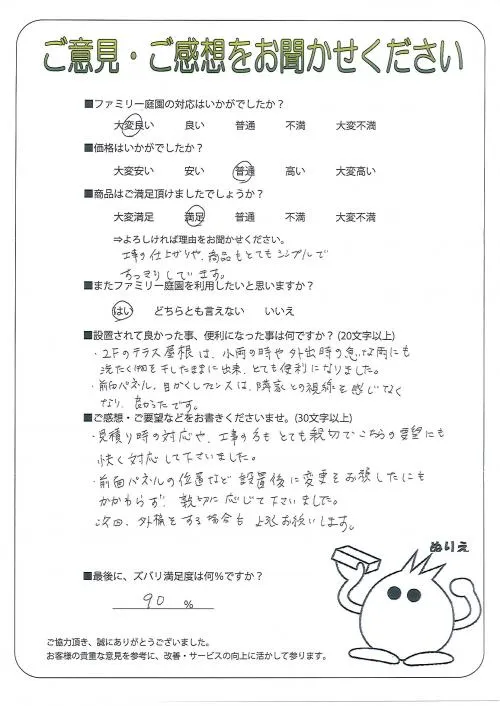 ご意見・ご感想をお聞かせください
■ファミリー庭園の対応はいかがでしたか？
大変良い 良い 普通 不満 大変不満
■価格はいかがでしたか？
大変安い 安い 普通 高い 大変高い
■商品はご満足頂けましたでしょうか？
大変満足 満足 普通 不満 大変不満
⇒よろしければ理由をお聞かせください。
工事の仕上がりや、商品もとてもシンプルで
すっきりしています。
■またファミリー庭園を利用したいと思いますか？
はい どちらとも言えない いいえ
■設置されて良かった事、便利になった事は何ですか？(20文字以上)
・2Fのテラス屋根は、小雨の時や外出時の急な雨にも
洗たく物を干したままに出来、とても便利になりました。
・前面パネル、目かくしフェンスは、隣家との視線を感じなく
なり、良かったです。
■ご感想・ご要望などをお書きくださいませ。(30文字以上)
・見積り時の対応や、工事の方も とても親切で こちらの要望にも
快く対応して下さいました。
・前面パネルの位置など 設置後に変更をお願したにも
かかわらず、親切に応じて下さいました。
次回、外構をする場合も よろしくお願いします。
ぬりえ
■最後に、ズバリ満足度は何%ですか？
90 %
ご協力頂き、誠にありがとうございました。
お客様の貴重な意見を参考に、改善・サービスの向上に活かして参ります。